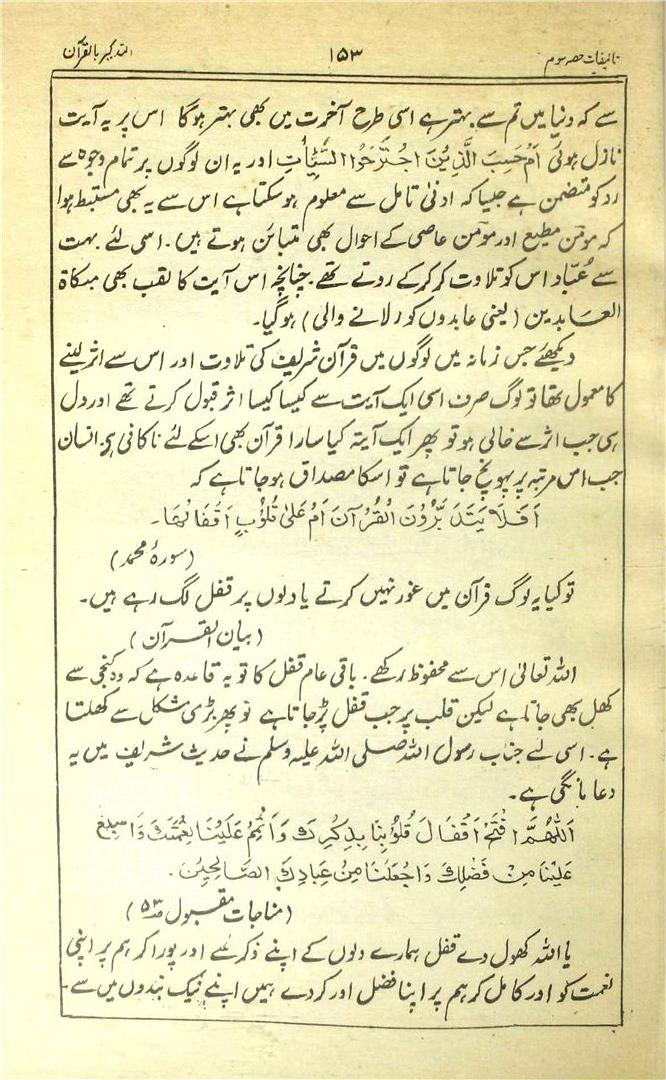 تالیفات حصہ سوم ۱۵۳ التذکیر بالقرآن
سے کہ دنیا میں تم سے بہتر ہے اسی طرح آخرت میں بھی بہتر ہوگا اس پر یہ آیت
نازل ہوئی اَمْ حَسِبَ الَّذِیْنَ اجْتَرَحُوا السَّیِّاٰتِ اور یہ ان لوگوں پر تمام وجوہ سے
رد کو متضمن ہے جیسا کہ ادنیٰ تامل سے معلوم ہوسکتا ہے اس سے یہ بھی مستنبط ہوا
کہ مومن مطیع اور مومن عاصی کے احوال بھی متبائن ہوتے ہیں۔ اسی لئے بہت
سے عُبّاد اس کو تلاوت کرکرکے روتے تھے۔ چنانچہ اس آیت کا لقب بھی مبکاۃ
العابدین (یعنی عابدوں کو رلانے والی) ہوگیا۔
دیکھئے جس زمانہ میں لوگوں میں قرآن شریف کی تلاوت اور اس سے اثر لینے
کا معمول تھا تو لوگ صرف اسی ایک آیت سے کیسا کیسا اثر قبول کرتے تھے اور دل
ہی جب اثر سے خالی ہو تو پھر ایک آیتہ کیا سارا قرآن بھی اسکے لئے ناکافی ہی۔ انسان
جب اس مرتبہ پر پہونچ جاتا ہے تو اسکا مصداق ہوجاتا ہے کہ
اَفَلَا یَتَدَبَّرُوْنَ الْقُرْاٰنَ اَمْ عَلٰی قُلُوْبٍ اَقْفَالُھَا۔
(سورۂ محمد)
تو کیا یہ لوگ قرآن میں غور نہیں کرتے یا دلوں پر قفل لگ رہے ہیں۔
(بیان القرآن)
اللہ تعالیٰ اس سے محفوظ رکھے۔ باقی عام قفل کا تو یہ قاعدہ ہے کہ وہ کنجی سے
کھل بھی جاتا ہے لیکن قلب پر جب قفل پڑجاتا ہے تو پھر بڑی مشکل سے کھلتا
ہے۔ اسی لئے جناب رسول اللہ صلی اللہ علیہ وسلم نے حدیث شریف میں یہ
دعا مانگی ہے۔
اَللّٰھُمَّ افْتَحْ اَقْفَالَ قُلُوْبِنَا بِذِکْرِكَ وَاَتْمِمْ عَلَیْنَا نِعْمَتَكَ وَاَسْبِغْ
عَلَیْنَا مِنْ فَضْلِكَ وَاجْعَلْنَا مِنْ عِبَادِكَ الصَّالِحِیْنَ۔
(مناجات مقبول ص۵۳)
یا اللہ کھول دے قفل ہمارے دلوں کے اپنے ذکر سے اور پورا کر ہم پر اپنی
نعمت کو اور کامل کر ہم پر اپنا فضل اور کردے ہمیں اپنے نیک بندوں میں سے۔